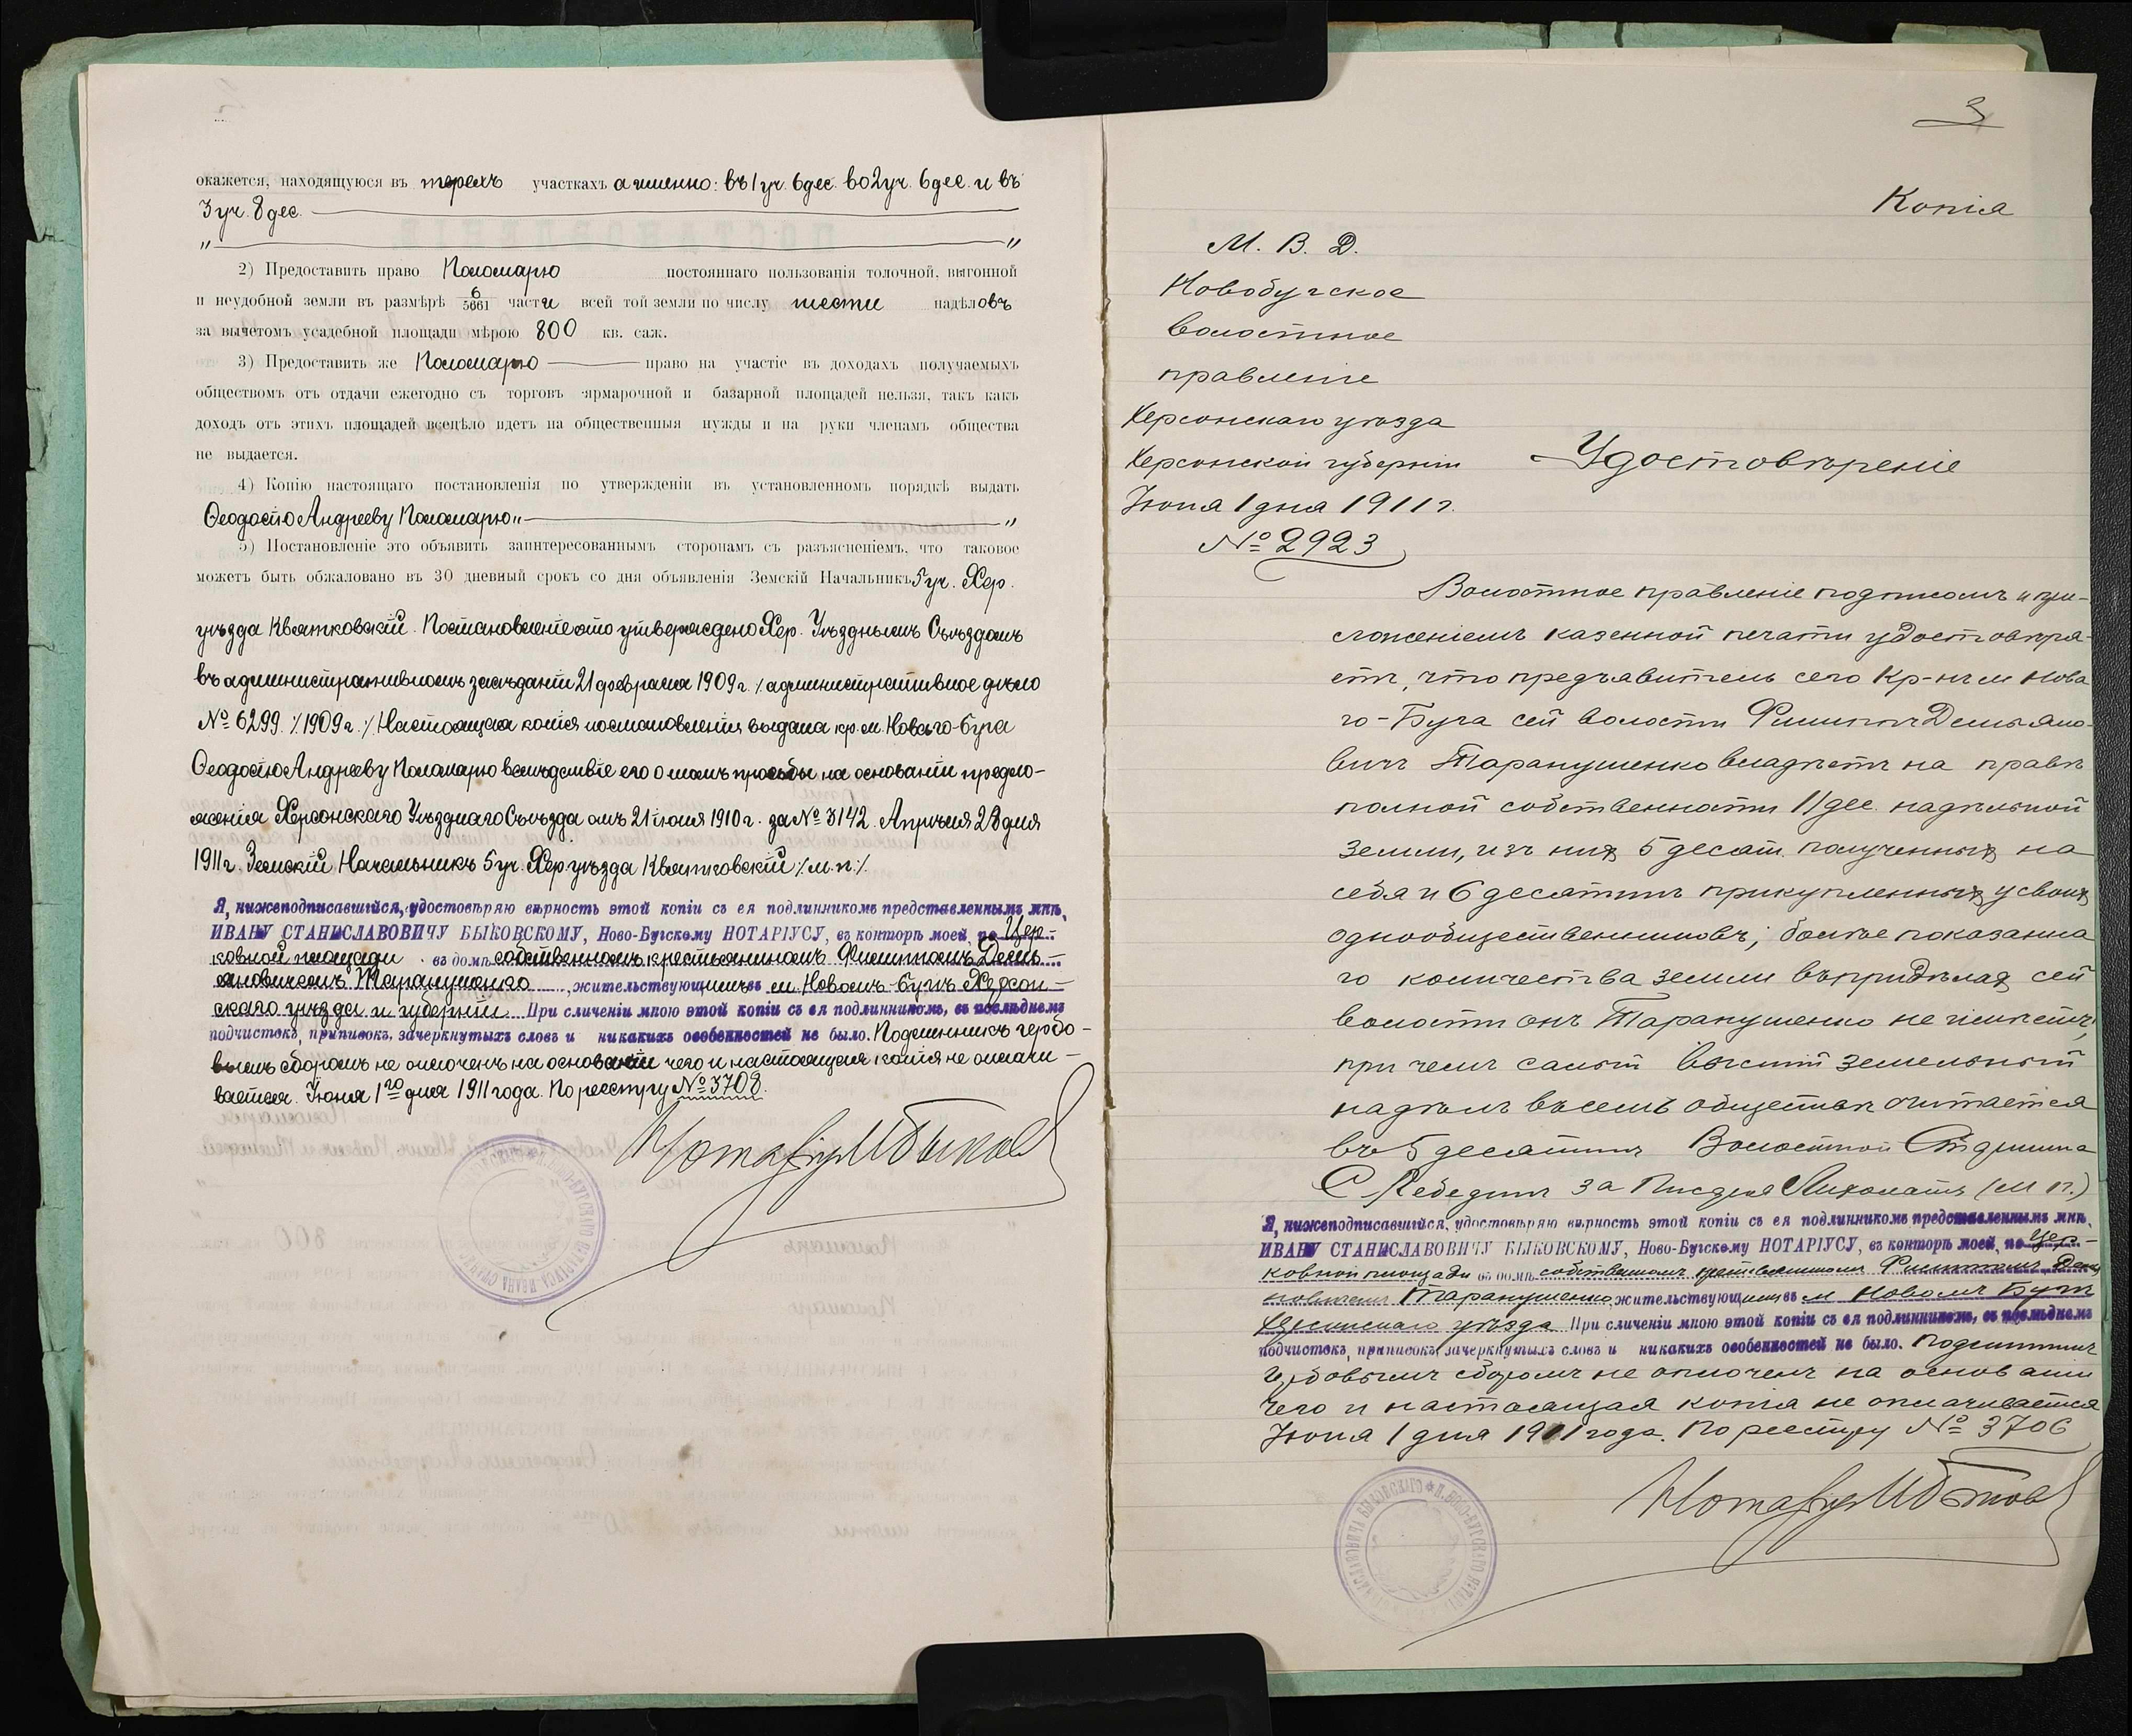 окажется, находящуюся въ трехъ участкахъ а именно: въ 1 уч. 6 дес. во 2 уч. 6 дес. и въ
3 уч. 8 дес.
„ „
2) Предоставить право Пономарю постояннаго пользованія толочной, выгонной
и неудобной земли въ размѣрѣ 6/5661 части всей той земли по числу шести надѣловъ
за вычетомъ усадебной площади мѣрою 800 кв. саж.
3) Предоставить же Пономарю право на участіе въ доходахъ получаемыхъ
обществомъ отъ отдачи ежегодно съ торговъ ярмарочной и базарной площадей нельзя, такъ какъ
доходъ отъ этихъ площадей всецѣло идетъ на общественныя нужды и на руки членамъ общества
не выдается.
4) Копію настоящаго постановленія по утвержденіи въ установленномъ порядкѣ выдать
Ѳеодосію Андрееву Пономарю „ „
5) Постановленіе это объявить заинтересованнымъ сторонамъ съ разъясненіемъ, что таковое
можетъ быть обжаловано въ 30 дневный срокъ со дня объявленія Земскій Начальникъ 5 уч. Хер.
уѣзда Квятковскій. Постановленіе это утверждено Хер. Уѣзднымъ Съѣздомъ
въ административномъ засѣданіи 21 февраля 1909 г. /административное дѣло
№ 6299. /. 1909 г. /. Настоящая копія постановленія выдана кр. м. Новаго-Буга
Ѳеодосію Андрееву Пономарю вслѣдствіе его о томъ просьбы на основаніи предло-
женія Херсонскаго Уѣзднаго Съѣзда отъ 21 іюня 1910 г. за № 3142. Апрѣля 28 дня
1911 г. Земскій Начальникъ 5 уч. Хер. уѣзда Квятковскій /. м. п. /.
Я, нижеподписавшійся, удостовѣряю вѣрность этой копіи съ ея подлинникомъ представленнымъ мнѣ,
ИВАНУ СТАНИСЛАВОВИЧУ БЫКОВСКОМУ, Ново-Бугскому НОТАРІУСУ, въ конторѣ моей, по Цер-
ковной площади въ домѣ собственномъ крестьяниномъ Филиппомъ Демь-
яновичемъ Таранушенко, жительствующимъ въ м. Новомъ-Бугѣ Херсон-
скаго уѣзда и губерніи. При сличеніи мною этой копіи съ ея подлинникомъ, въ послѣднемъ
подчистокъ, приписокъ, зачеркнутыхъ словъ и никакихъ особенностей не было. Подлинникъ гербо-
вымъ сборомъ не оплоченъ на основаніи чего и настоящая копія не оплачи-
вается. Іюня 1го дня 1911 года. По реестру № 3708.
Нотаріусъ И Быковск
3
Копія
М. В. Д.
Новобугское
волостное
правленіе
Херсонскаго уѣзда
Херсонской губерніи
Іюня 1 дня 1911 г.
№ 2923
Удостовѣреніе
Волостное правленіе подписомъ и при-
ложеніемъ казенной печати удостовѣря-
етъ, что предъявитель сего Кр-нъ м Нова
го-Буга сей волости Филиппъ Демьяно-
вичъ Таранушенко владѣетъ на правѣ
полной собственности 11 дес. надѣльной
земли, изъ нихъ 5 десят. полученныхъ на
себя и 6 десятинъ прикупленныхъ у своихъ
однообщественниковъ; болѣе показанна
го количества земли въ предѣлахъ сей
волости онъ Таранушенко не имѣетъ,
при чемъ самый высшій земельный
надѣлъ въ семъ обществѣ считается
въ 5 десятинъ Волостной Старшина
С Лебединъ За Писаря Лихолатъ (М П.)
Я, нижеподписавшійся, удостовѣряю вѣрность этой копіи съ ея подлинникомъ представленнымъ мнѣ,
ИВАНУ СТАНИСЛАВОВИЧУ БЫКОВСКОМУ, Ново-Бугскому НОТАРІУСУ, въ конторѣ моей, по Цер-
ковной площади въ домѣ собственномъ крестьяниномъ Филиппомъ Демья
новичемъ Таранушенко, жительствующимъ въ м Новомъ Бугѣ
Херсонскаго уѣзда При сличеніи мною этой копіи съ ея подлинникомъ, въ послѣднемъ
подчистокъ, приписокъ, зачеркнутыхъ словъ и никакихъ особенностей не было. Подлинникъ
гербовымъ сборомъ не оплоченъ на основаніи
чего и настоящая копія не оплачивается
Іюня 1 дня 1911 года. По реестру № 3706
Нотаріусъ И Быковск